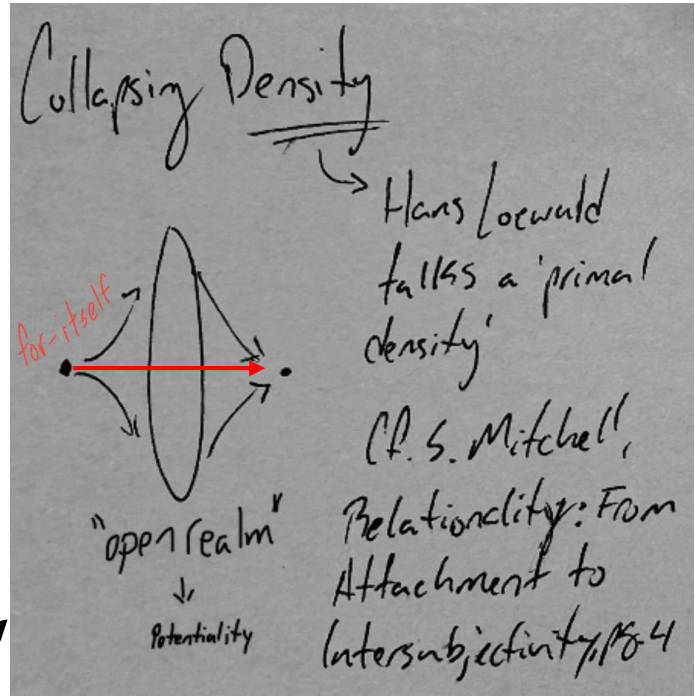 Collapsing Density
Hans Loewald
talks a 'primal
density'
Cf. S. Mitchell,
Relationality: From
Attachment to
Intersubjectivity, pg. 4
for-itself
"open realm"
Potentiality